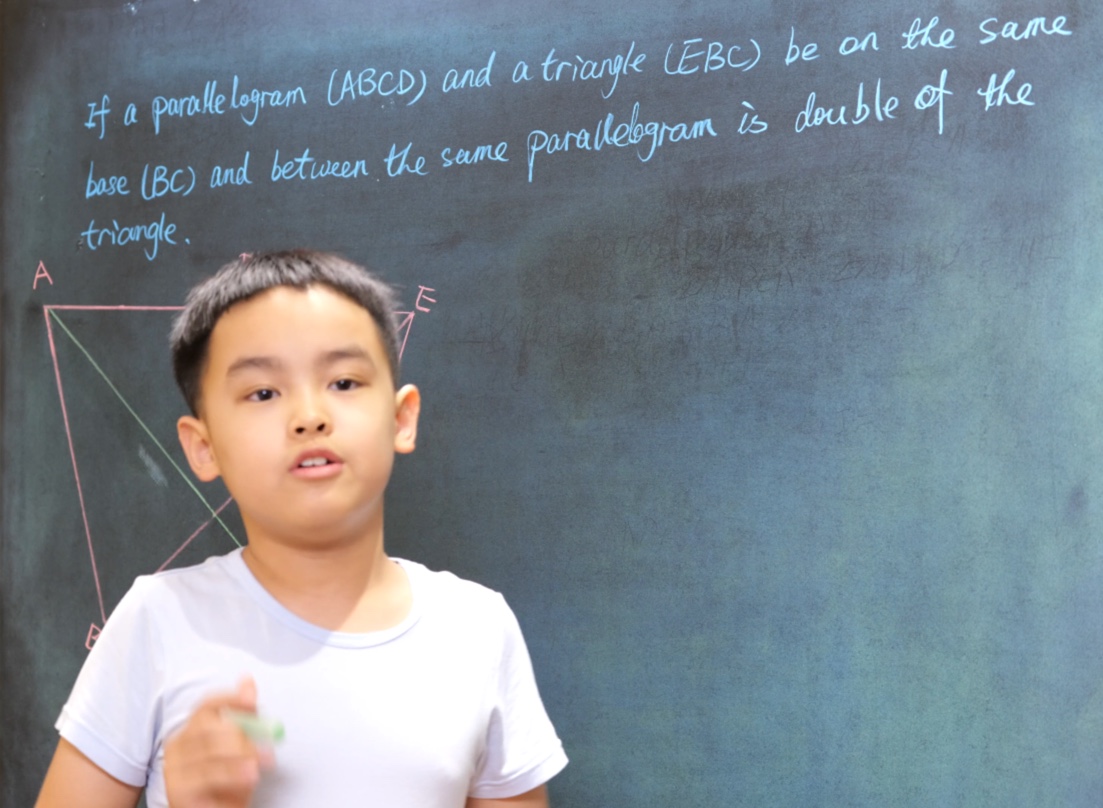 If a parallelogram (ABCD) and a triangle (EBC) be on the same
base (BC) and between the same parallelogram is double of the
triangle.
A
E
B